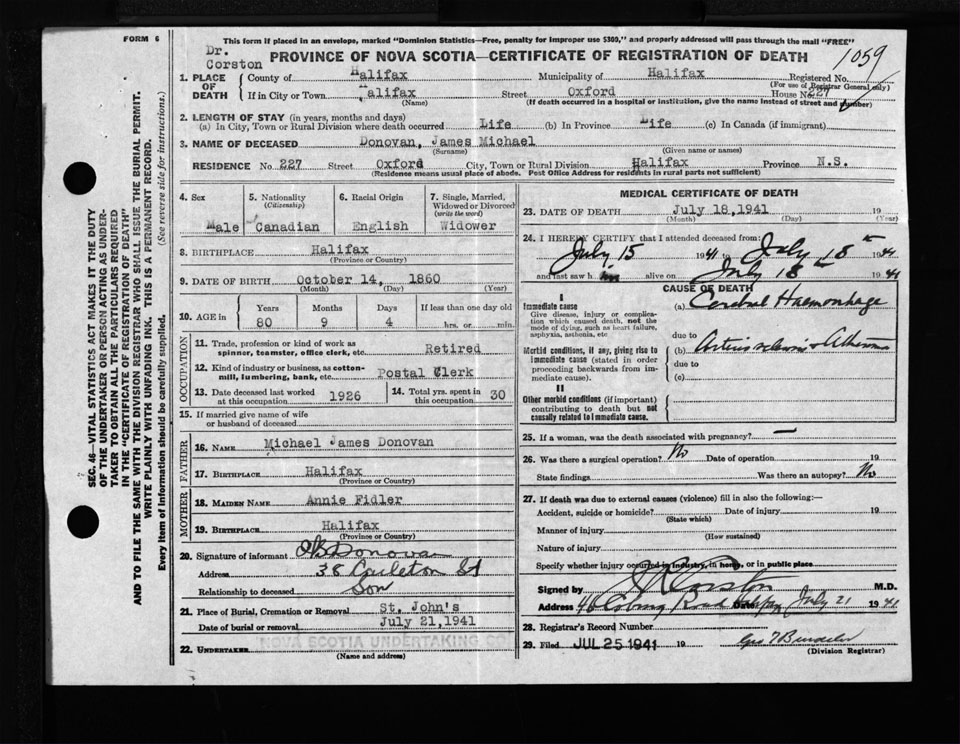 FORM 6
This form if placed in an envelope, marked "Dominion Statistics—Free, penalty for improper use $300," and properly addressed will pass through the mail "FREE"
Dr. Corston
PROVINCE OF NOVA SCOTIA—CERTIFICATE OF REGISTRATION OF DEATH
1059
1. PLACE OF DEATH
County of Halifax Municipality of Halifax Registered No.
(For use of Registrar General only)
If in City or Town Halifax Street Oxford House No. 227
(Name) (If death occurred in a hospital or institution, give the name instead of street and number)
2. LENGTH OF STAY (in years, months and days)
(a) In City, Town or Rural Division where death occurred Life (b) In Province Life (c) In Canada (if immigrant)
3. NAME OF DECEASED Donovan, James Michael
(Surname) (Given name or names)
RESIDENCE No. 227 Street Oxford City, Town or Rural Division Halifax Province N.S.
(Residence means usual place of abode. Post Office Address for residents in rural parts not sufficient)
4. Sex Male
5. Nationality (Citizenship) Canadian
6. Racial Origin English
7. Single, Married, Widowed or Divorced (write the word) Widower
8. BIRTHPLACE Halifax
(Province or Country)
9. DATE OF BIRTH October 14, 1860
(Month) (Day) (Year)
10. AGE in Years Months Days If less than one day old
80 9 4 hrs. or min.
OCCUPATION
11. Trade, profession or kind of work as spinner, teamster, office clerk, etc. Retired
12. Kind of industry or business, as cotton-mill, lumbering, bank, etc. Postal Clerk
13. Date deceased last worked at this occupation 1926
14. Total yrs. spent in this occupation 30
15. If married give name of wife or husband of deceased
FATHER
16. NAME Michael James Donovan
17. BIRTHPLACE Halifax
(Province or Country)
MOTHER
18. MAIDEN NAME Annie Fidler
19. BIRTHPLACE Halifax
(Province or Country)
20. Signature of informant Donovan
Address 38 Carleton St
Relationship to deceased Son
21. Place of Burial, Cremation or Removal St. John's
Date of burial or removal July 21, 1941
22. UNDERTAKER NOVA SCOTIA UNDERTAKING CO
(Name and address)
MEDICAL CERTIFICATE OF DEATH
23. DATE OF DEATH July 18, 1941 19
(Month) (Day) (Year)
24. I HEREBY CERTIFY that I attended deceased from:
July 15 1941 to July 18th 1941
and last saw him alive on July 18th 1941
CAUSE OF DEATH
I
Immediate cause
Give disease, injury or complication which caused death, not the mode of dying, such as heart failure, asphyxia, asthenia, etc
(a) Cerebral Haemorrhage
due to
Morbid conditions, if any, giving rise to immediate cause (stated in order proceeding backwards from immediate cause).
(b)
due to
(c)
II
Other morbid conditions (if important) contributing to death but not causally related to immediate cause.
25. If a woman, was the death associated with pregnancy? —
26. Was there a surgical operation? No Date of operation 19
State findings Was there an autopsy? No
27. If death was due to external causes (violence) fill in also the following:—
Accident, suicide or homicide? Date of injury 19
(State which)
Manner of injury
(How sustained)
Nature of injury
Specify whether injury occurred in industry, in home, or in public place
Signed by Corston M.D.
Address Date July 21 1941
28. Registrar's Record Number
29. Filed JUL 25 1941 19
(Division Registrar)
SEC. 46—VITAL STATISTICS ACT MAKES IT THE DUTY
OF THE UNDERTAKER OR PERSON ACTING AS UNDER-
TAKER TO OBTAIN ALL THE PARTICULARS REQUIRED
IN THE "CERTIFICATE OF REGISTRATION OF DEATH"
AND TO FILE THE SAME WITH THE DIVISION REGISTRAR WHO SHALL ISSUE THE BURIAL PERMIT.
WRITE PLAINLY WITH UNFADING INK. THIS IS A PERMANENT RECORD.
Every item of information should be carefully supplied. (See reverse side for instructions.)